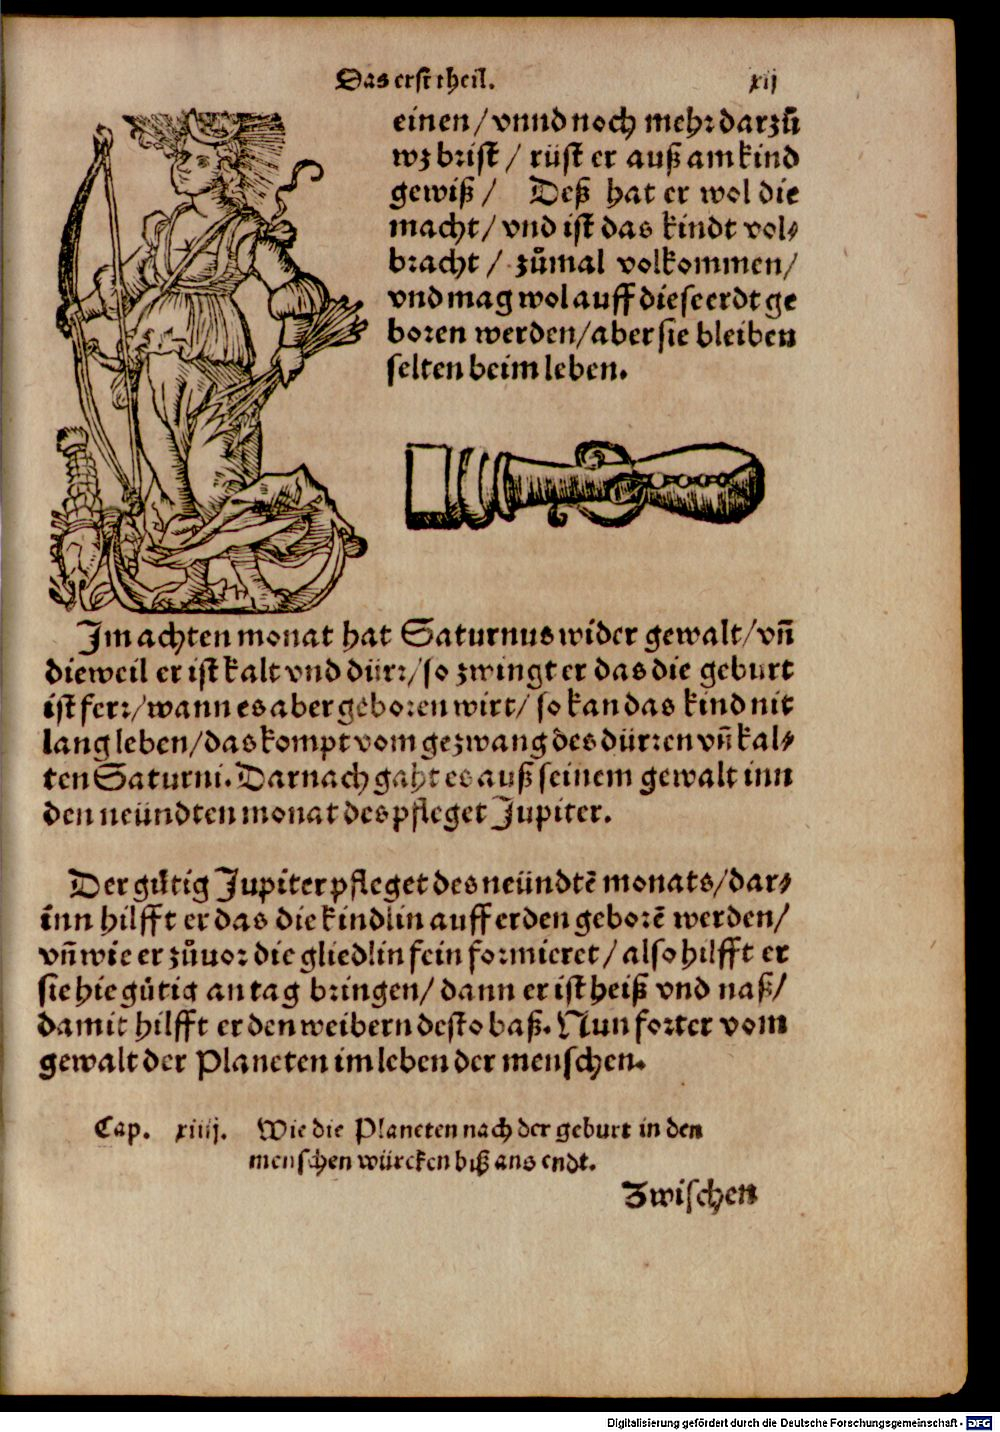 Das erst theil. xij
einen/ vnnd noch mehr darzů
wz brist / rüst er auß am kind
gewiß / Deß hat er wol die
macht/ vnd ist das kindt vol⸗
bracht / zůmal volkommen/
vnd mag wol auff diese erdt ge
boren werden/ aber sie bleiben
selten beim leben.
Im achten monat hat Saturnus wider gewalt/ vñ
dieweil er ist kalt vnd dürr/ so zwingt er das die geburt
ist ferr/ wann es aber geboren wirt/ so kan das kind nit
lang leben/ das kompt vom gezwang des dürren vñ kal⸗
ten Saturni. Darnach gaht es auß seinem gewalt inn
den neündten monat des pfleget Jupiter.
Der gůtig Jupiter pfleget des neündtē monats/ dar⸗
inn hilfft er das die kindlin auff erden geborē werden/
vñ wie er zůuor die gliedlin fein formieret / also hilfft er
sie hie gůtig an tag bringen/ dann er ist heiß vnd naß/
damit hilfft er den weibern desto baß. Nun forter vom
gewalt der Planeten im leben der menschen.
Cap. xiiij. Wie die Planeten nach der geburt in den
menschen würcken biß ans endt.
Zwischen
Digitalisierung gefördert durch die Deutsche Forschungsgemeinschaft - DFG